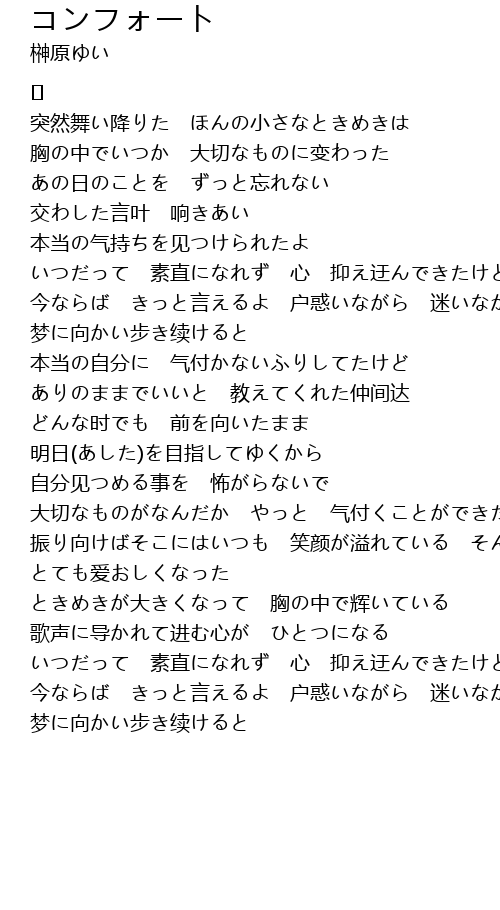 コンフォート
榊原ゆい
突然舞い降りた　ほんの小さなときめきは
胸の中でいつか　大切なものに変わった
あの日のことを　ずっと忘れない
交わした言叶　响きあい
本当の气持ちを见つけられたよ
いつだって　素直になれず　心　抑え迂んできたけど
今ならば　きっと言えるよ　户惑いながら　迷いなが
梦に向かい歩き续けると
本当の自分に　气付かないふりしてたけど
ありのままでいいと　教えてくれた仲间达
どんな时でも　前を向いたまま
明日(あした)を目指してゆくから
自分见つめる事を　怖がらないで
大切なものがなんだか　やっと　气付くことができた
振り向けばそこにはいつも　笑颜が溢れている　そん
とても爱おしくなった
ときめきが大きくなって　胸の中で辉いている
歌声に导かれて进む心が　ひとつになる
いつだって　素直になれず　心　抑え迂んできたけど
今ならば　きっと言えるよ　户惑いながら　迷いなが
梦に向かい歩き续けると